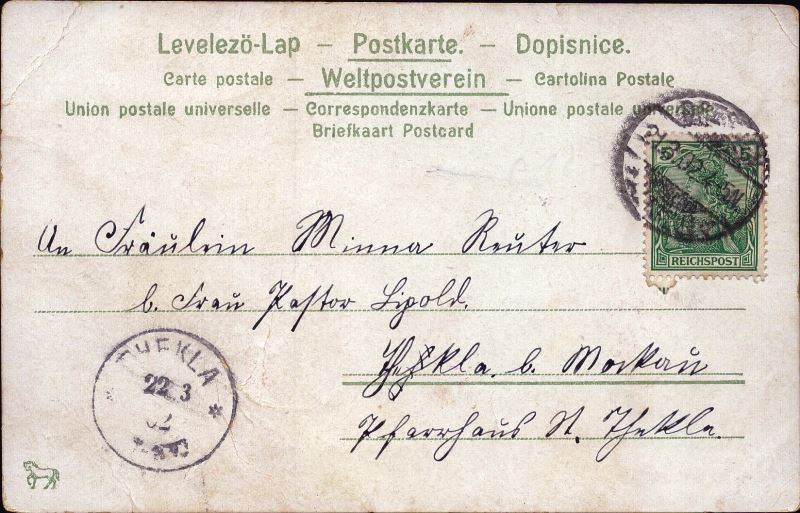 Levelezö-Lap – Postkarte. – Dopisnice.
Carte postale – Weltpostverein – Cartolina Postale
Union postale universelle – Correspondenzkarte – Unione postale universale
Briefkaart Postcard
5 5
REICHSPOST
An Fräulein Minna Reuter
b. Frau Pastor Lipold.
Thekla. b. Mockau
Pfarrhaus St. Thekla.
THEKLA
22 3
02